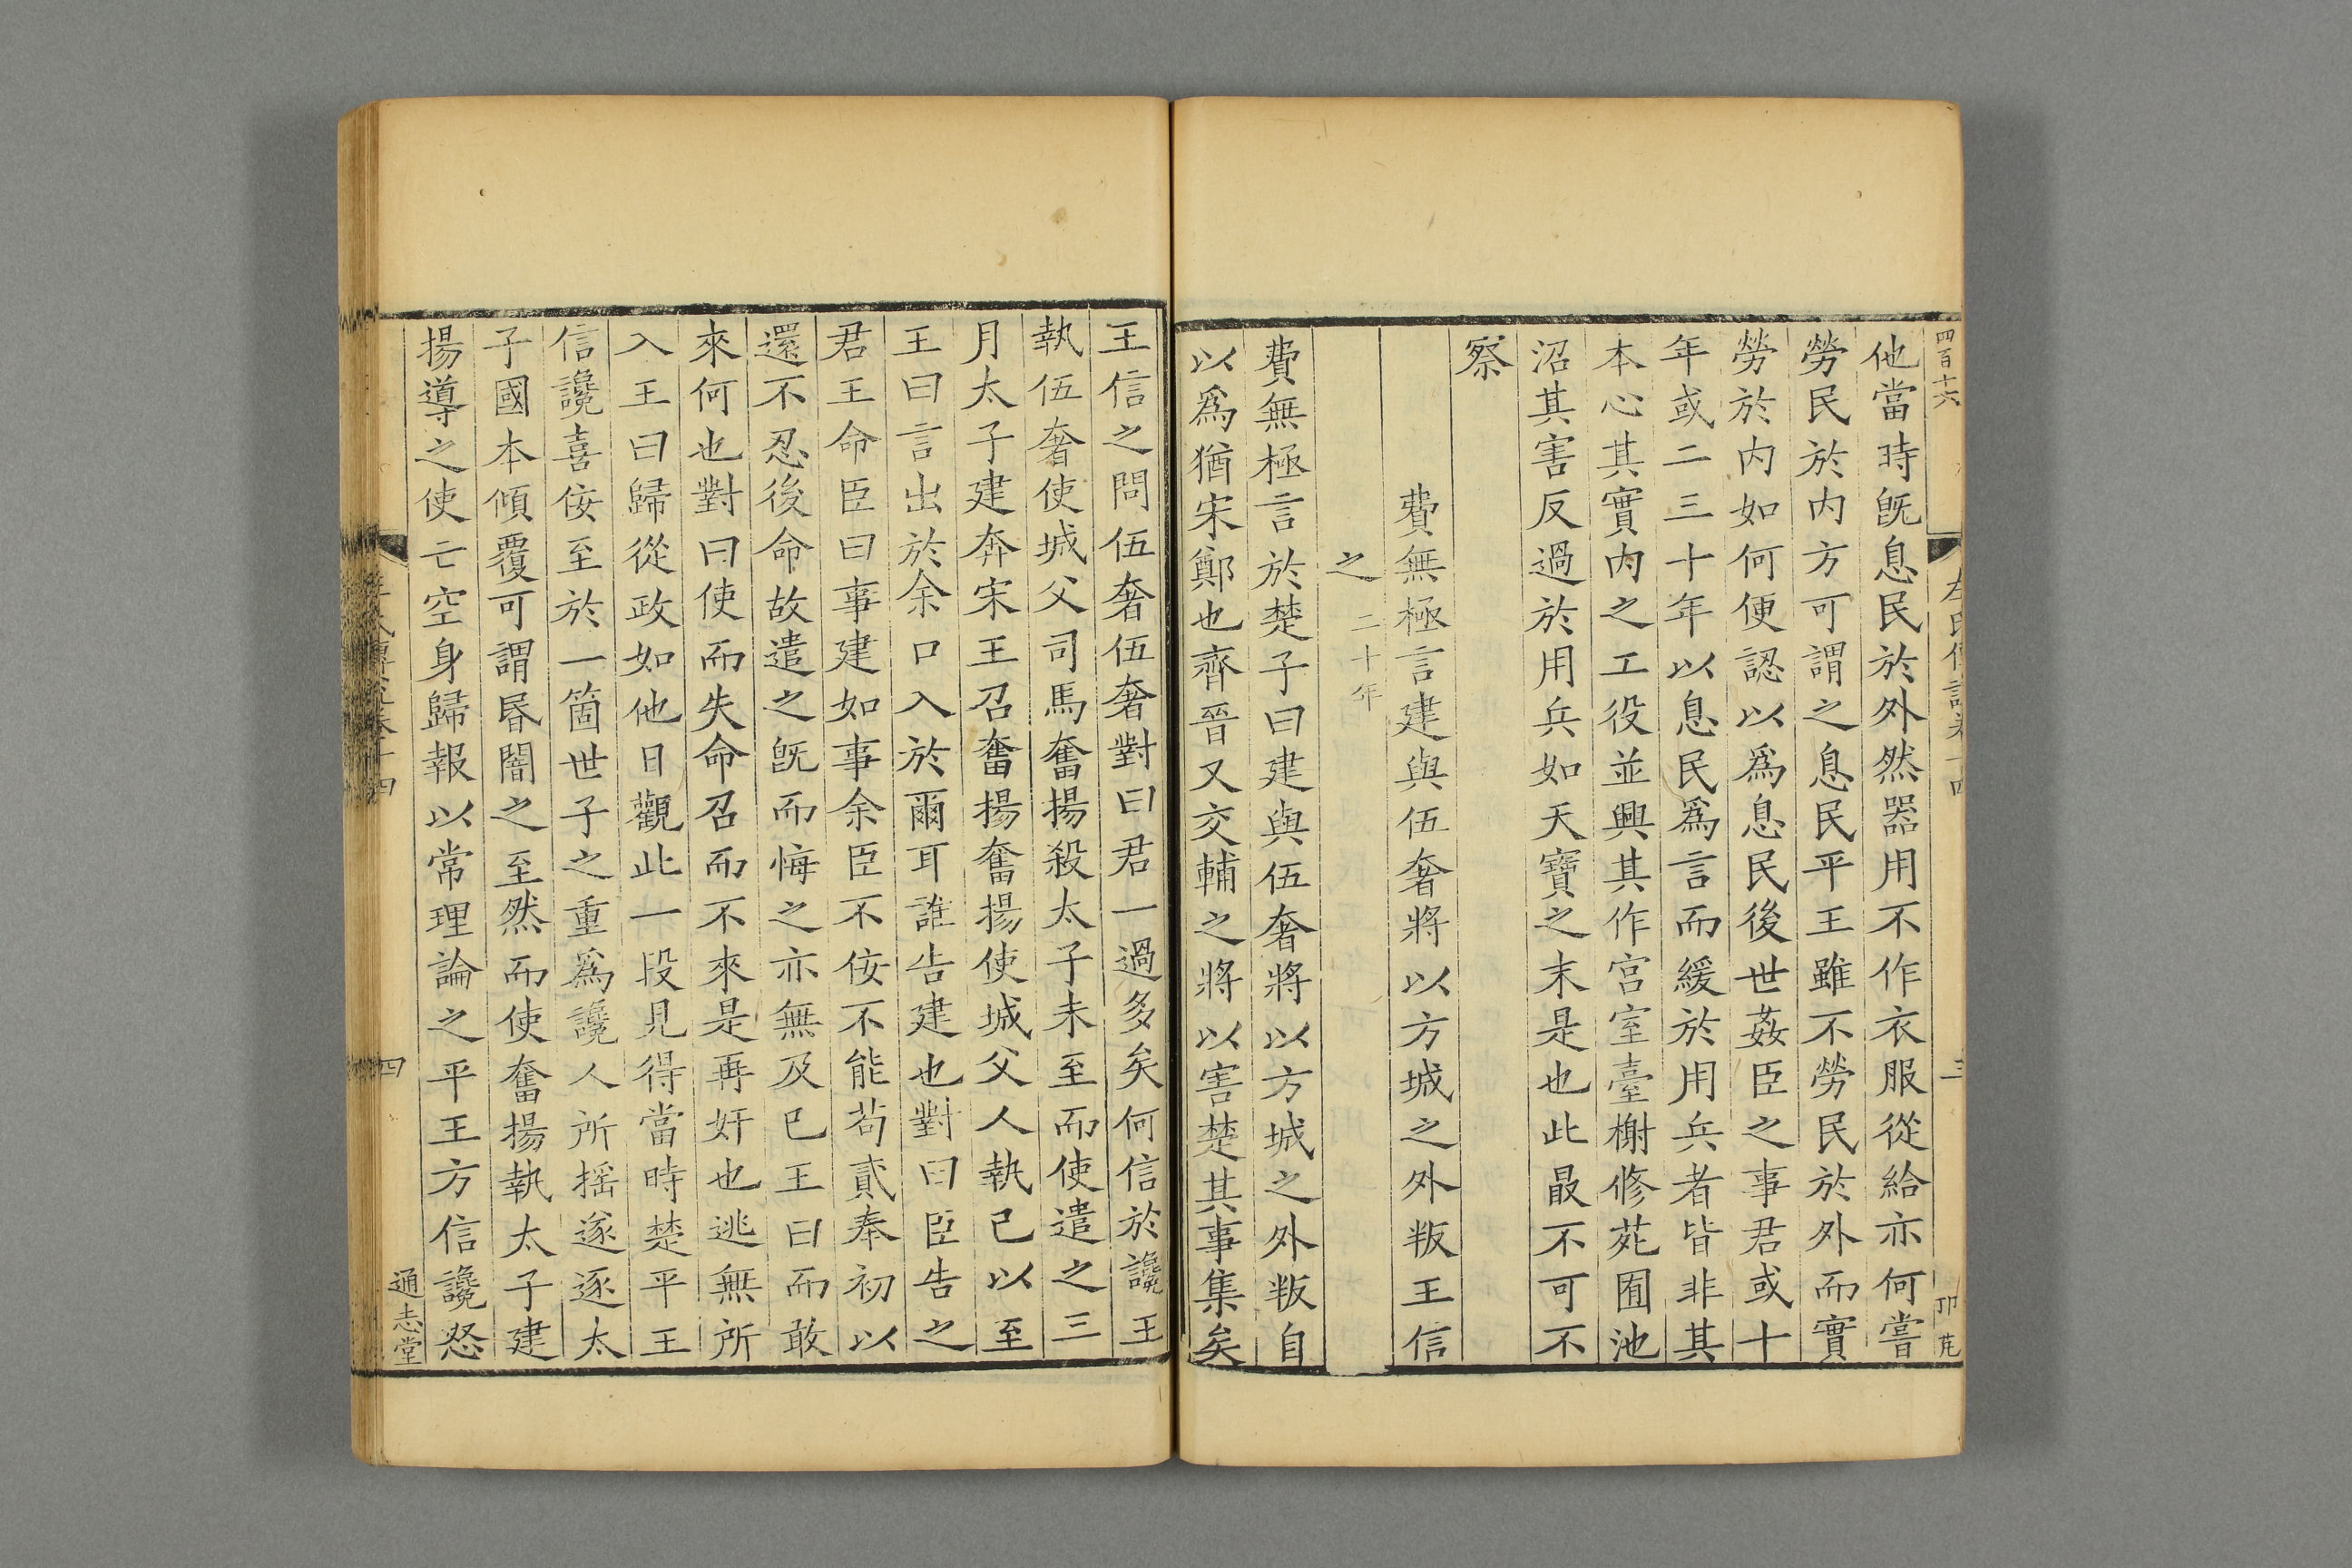 四百十六
左氏傳說卷十四
三
他當時旣息民於外然器用不作衣服從給亦何嘗
勞民於内方可謂之息民平王雖不勞民於外而實
勞於内如何便認以爲息民後世姦臣之事君或十
年或二三十年以息民爲言而緩於用兵者皆非其
本心其實内之工役並興其作宫室臺榭修苑囿池
沼其害反過於用兵如天寶之末是也此最不可不
察
費無極言建與伍奢將以方城之外叛王信
之 二十年
費無極言於楚子曰建與伍奢將以方城之外叛自
以爲猶宋鄭也齊晉又交輔之將以害楚其事集矣
王信之問伍奢伍奢對曰君一過多矣何信於讒王
執伍奢使城父司馬奮揚殺太子未至而使遣之三
月太子建奔宋王召奮揚奮揚使城父人執已以至
王曰言出於余口入於爾耳誰告建也對曰臣告之
君王命臣曰事建如事余臣不佞不能苟貳奉初以
還不忍後命故遣之旣而悔之亦無及已王曰而敢
來何也對曰使而失命召而不來是再奸也逃無所
入王曰歸從政如他日觀此一段見得當時楚平王
信讒喜佞至於一箇世子之重爲讒人所揺遂逐太
子國本傾覆可謂昏闇之至然而使奮揚執太子建
揚導之使亡空身歸報以常理論之平王方信讒怒
卷十四
四
通志堂